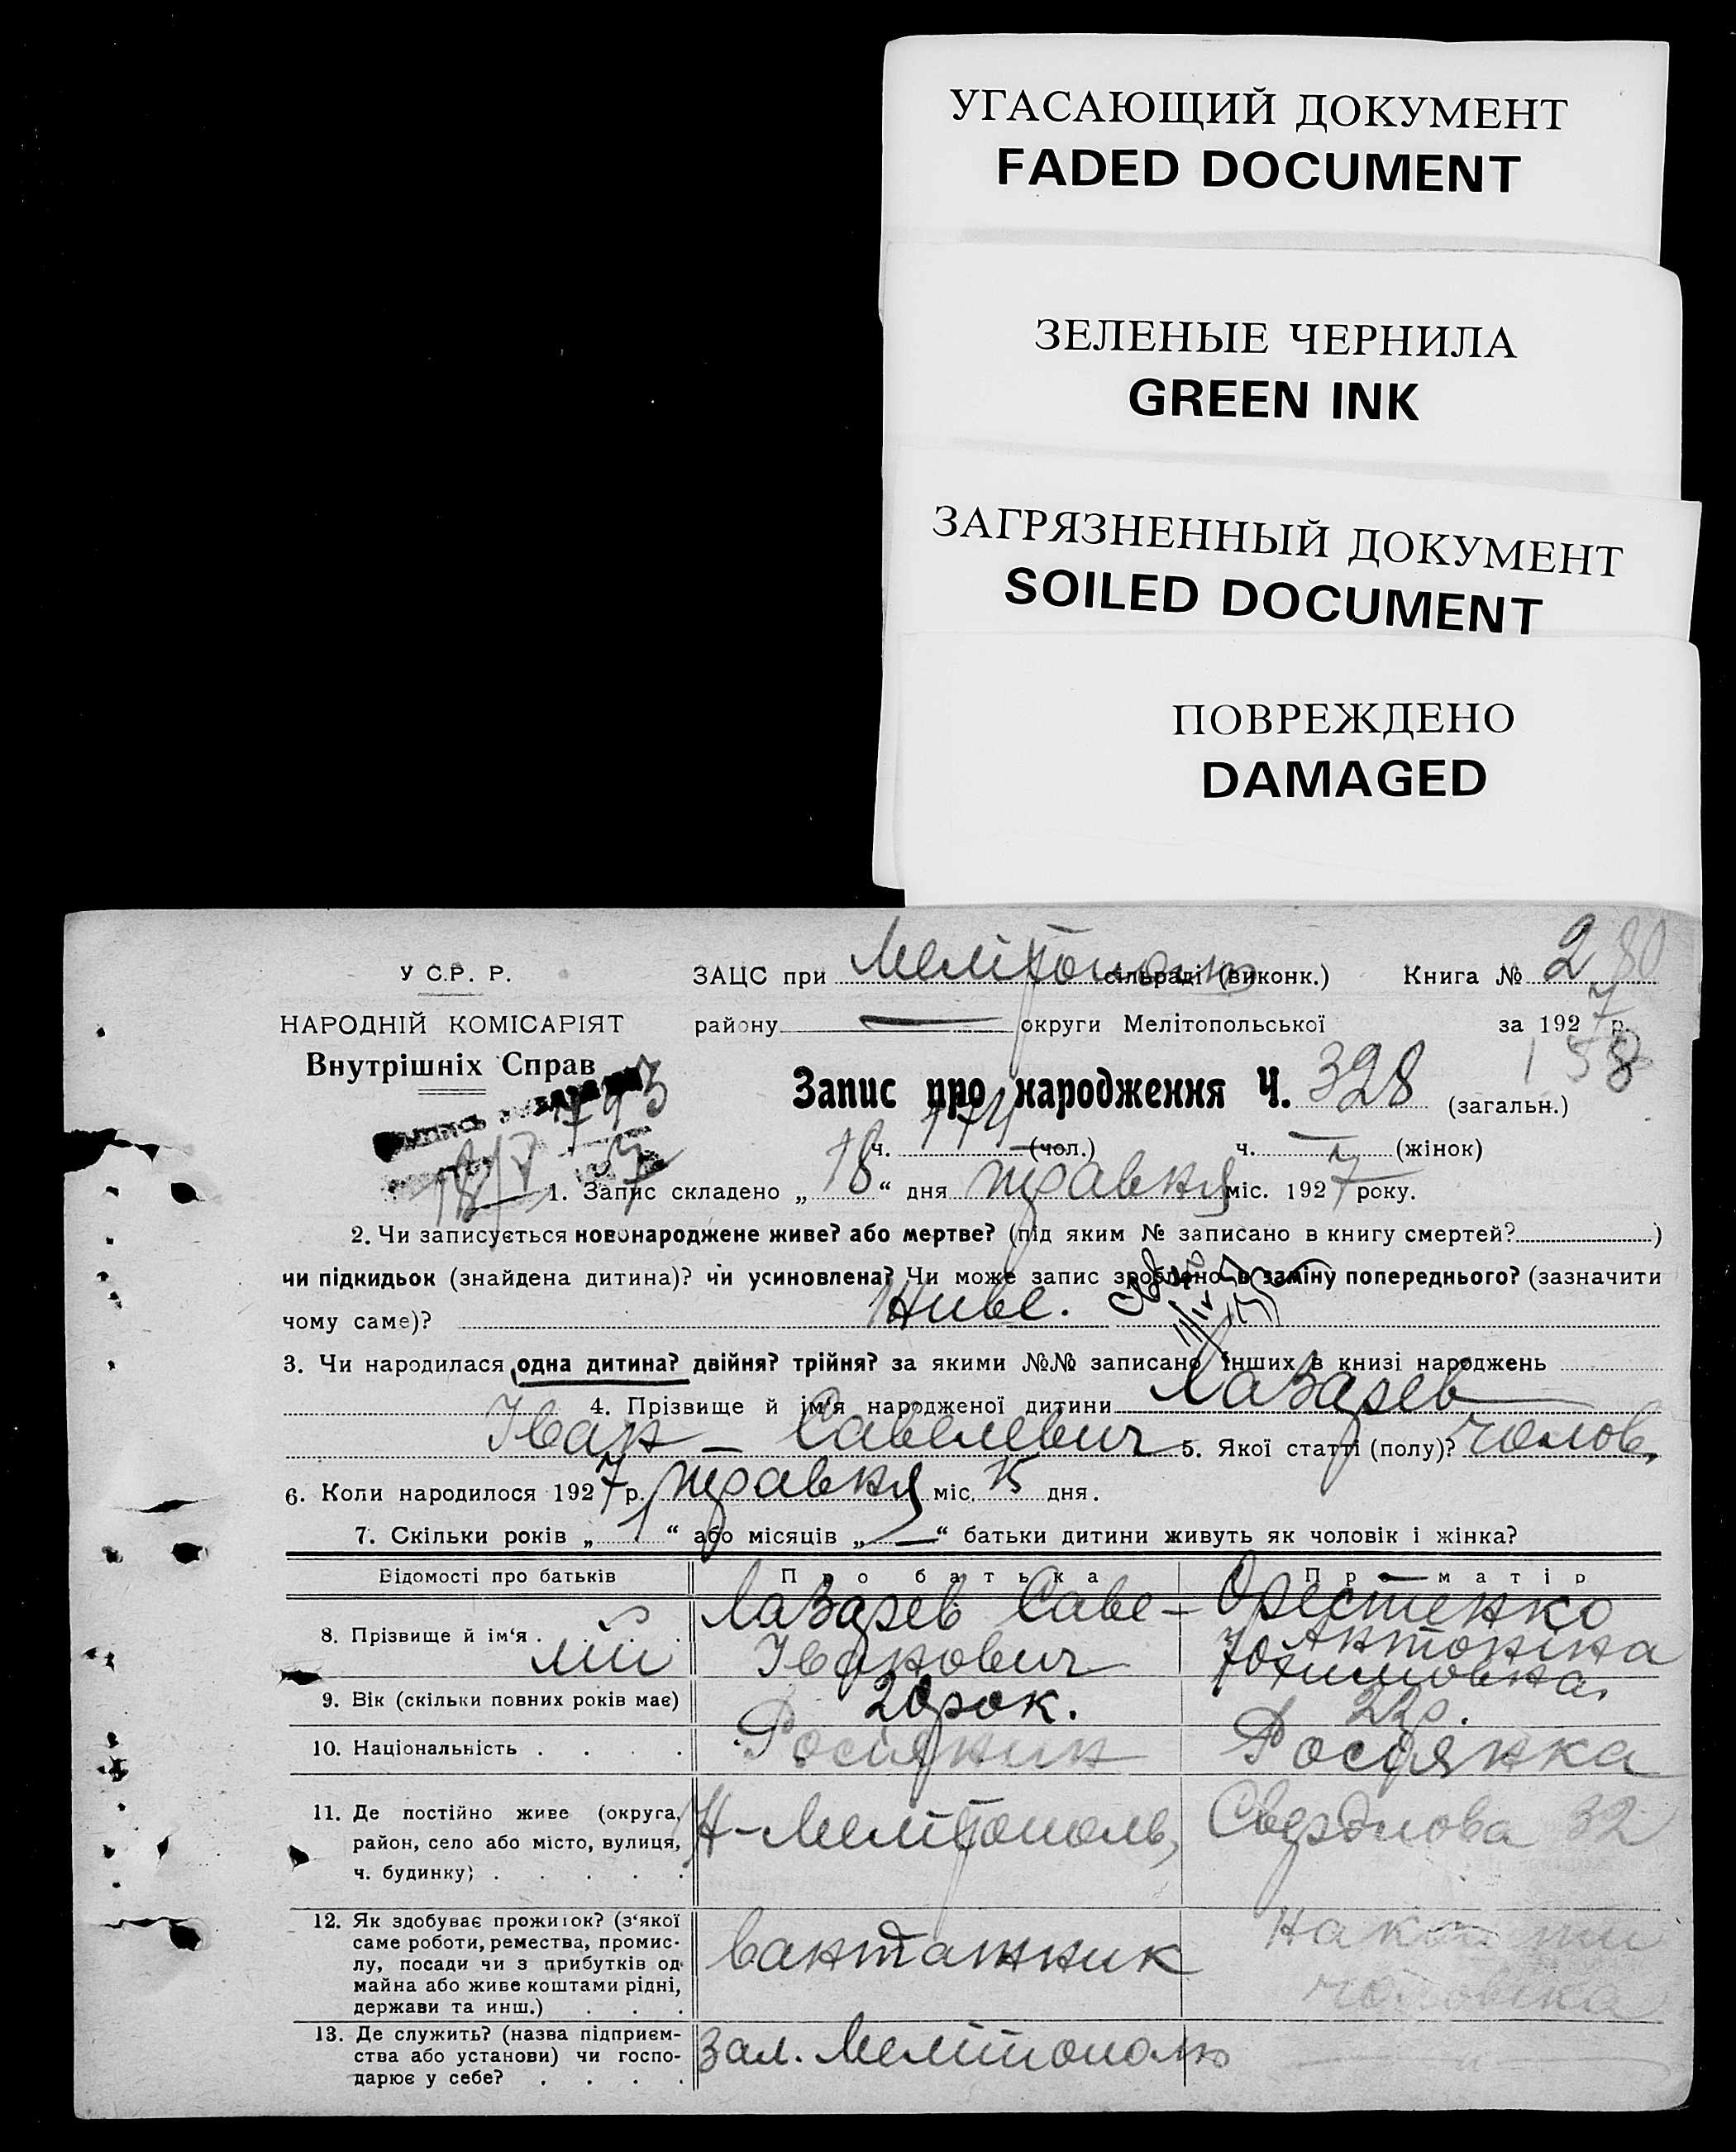 УГАСАЮЩИЙ ДОКУМЕНТ
FADED DOCUMENT
ЗЕЛЕНЫЕ ЧЕРНИЛА
GREEN INK
ЗАГРЯЗНЕННЫЙ ДОКУМЕНТ
SOILED DOCUMENT
ПОВРЕЖДЕНО
DAMAGED
У С.Р. Р.
НАРОДНІЙ КОМІСАРІЯТ
Внутрішніх Справ
ЗАЦС при Мелітополь сільраді (виконк.) Книга № 2 80
району — округи Мелітопольської за 1927 р.
158
Запис про народження Ч. 328 (загальн.)
ч. 174 (чол.) ч. — (жінок)
18/V
1. Запис складено „ 18 “ дня травня міс. 1927 року.
2. Чи записується новонароджене живе? або мертве? (під яким № записано в книгу смертей? )
чи підкидьок (знайдена дитина)? чи усиновлена? Чи може запис зроблено в заміну попереднього? (зазначити
чому саме)? Живе.
3. Чи народилася одна дитина? двійня? трійня? за якими №№ записано інших в книзі народжень
4. Прізвище й ім'я народженої дитини Лазарев
Іван – Савелевич 5. Якої статті (полу)? чолов.
6. Коли народилося 1927 р. травня міс. 15 дня.
7. Скільки років „ 1 “ або місяців „ — “ батьки дитини живуть як чоловік і жінка?
Відомості про батьків Про батька Про матір
8. Прізвище й ім'я . . . . Лазарев Саве-лій Іванович Орестенко Антоніна Юхимовна.
9. Вік (скільки повних років має) 20 рок. 22 р.
10. Національність . . . . Росіянин Росіянка
11. Де постійно живе (округа,
район, село або місто, вулиця,
ч. будинку) . . . . .
Н-Мелітополь, Свердлова 32
12. Як здобуває прожиток? (з'якої
саме роботи, ремества, промис-
лу, посади чи з прибутків од
майна або живе коштами рідні,
держави та инш.) . . .
вантажник
На кошти
чоловіка
13. Де служить? (назва підприєм-
ства або установи) чи госпо-
дарює у себе? . . . .
Зал. Мелітополь